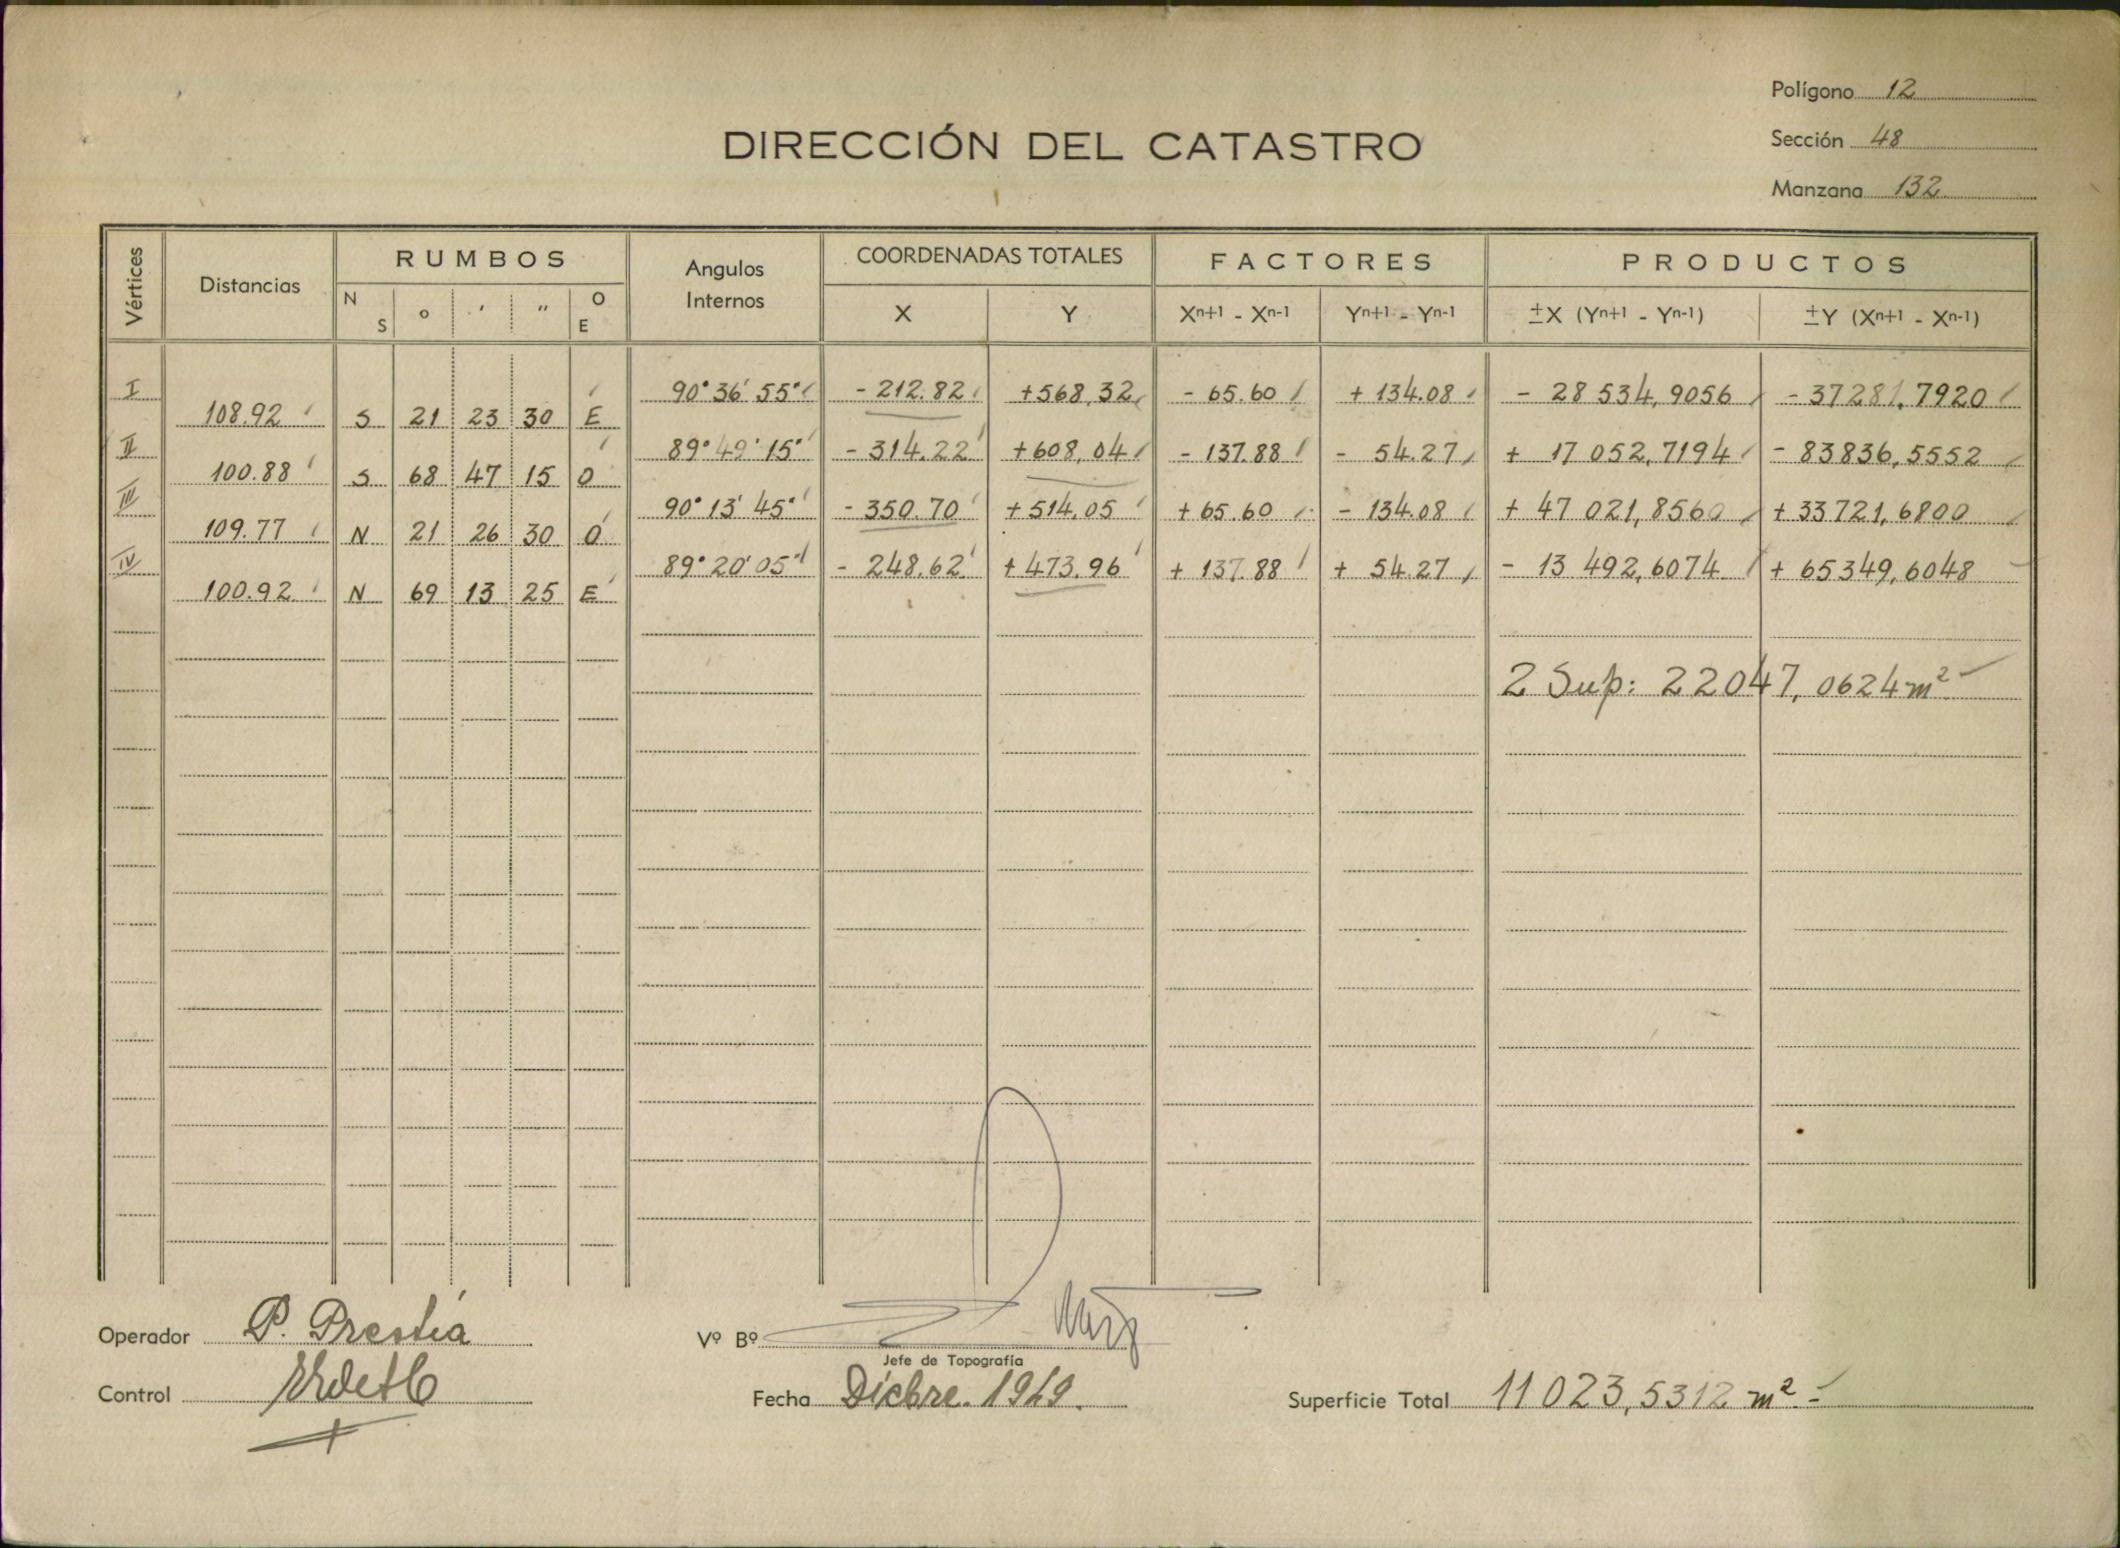 Polígono 12
DIRECCIÓN DEL CATASTRO
Sección 48
Manzana 132
Vértices Distancias RUMBOS Angulos Internos COORDENADAS TOTALES FACTORES PRODUCTOS
N S o ' " O E X Y Xn+1 - Xn-1 Yn+1 - Yn-1 ±X (Yn+1 - Yn-1) ±Y (Xn+1 - Xn-1)
I 90° 36' 55" - 212.82 +568,32 - 65.60 + 134.08 - 28 534,9056 - 37281,7920
108.92 S 21 23 30 E
II 89° 49' 15" - 314.22 +608,04 - 137.88 - 54.27 + 17 052,7194 - 83836,5552
100.88 S 68 47 15 O
III 90° 13' 45" - 350.70 +514,05 + 65.60 - 134.08 + 47 021,8560 + 33721,6800
109.77 N 21 26 30 O
IV 89° 20' 05" - 248,62 + 473,96 + 137.88 + 54.27 - 13 492,6074 + 65349,6048
100.92 N 69 13 25 E
2 Sup: 22047,0624 m²
Operador P. Prestía
Vº Bº
Jefe de Topografía
Control
Fecha Dicbre. 1949.
Superficie Total 11023,5312 m².-